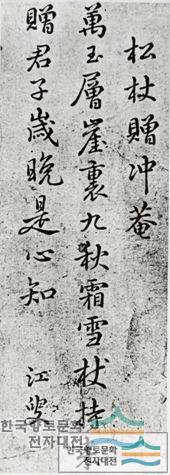 松杖贈冲菴
萬玉層崖裏九秋霜雪枝持
贈君子歲晚是心知
江叟
한국향토문화
전자대전
한국향토문화
전자대전